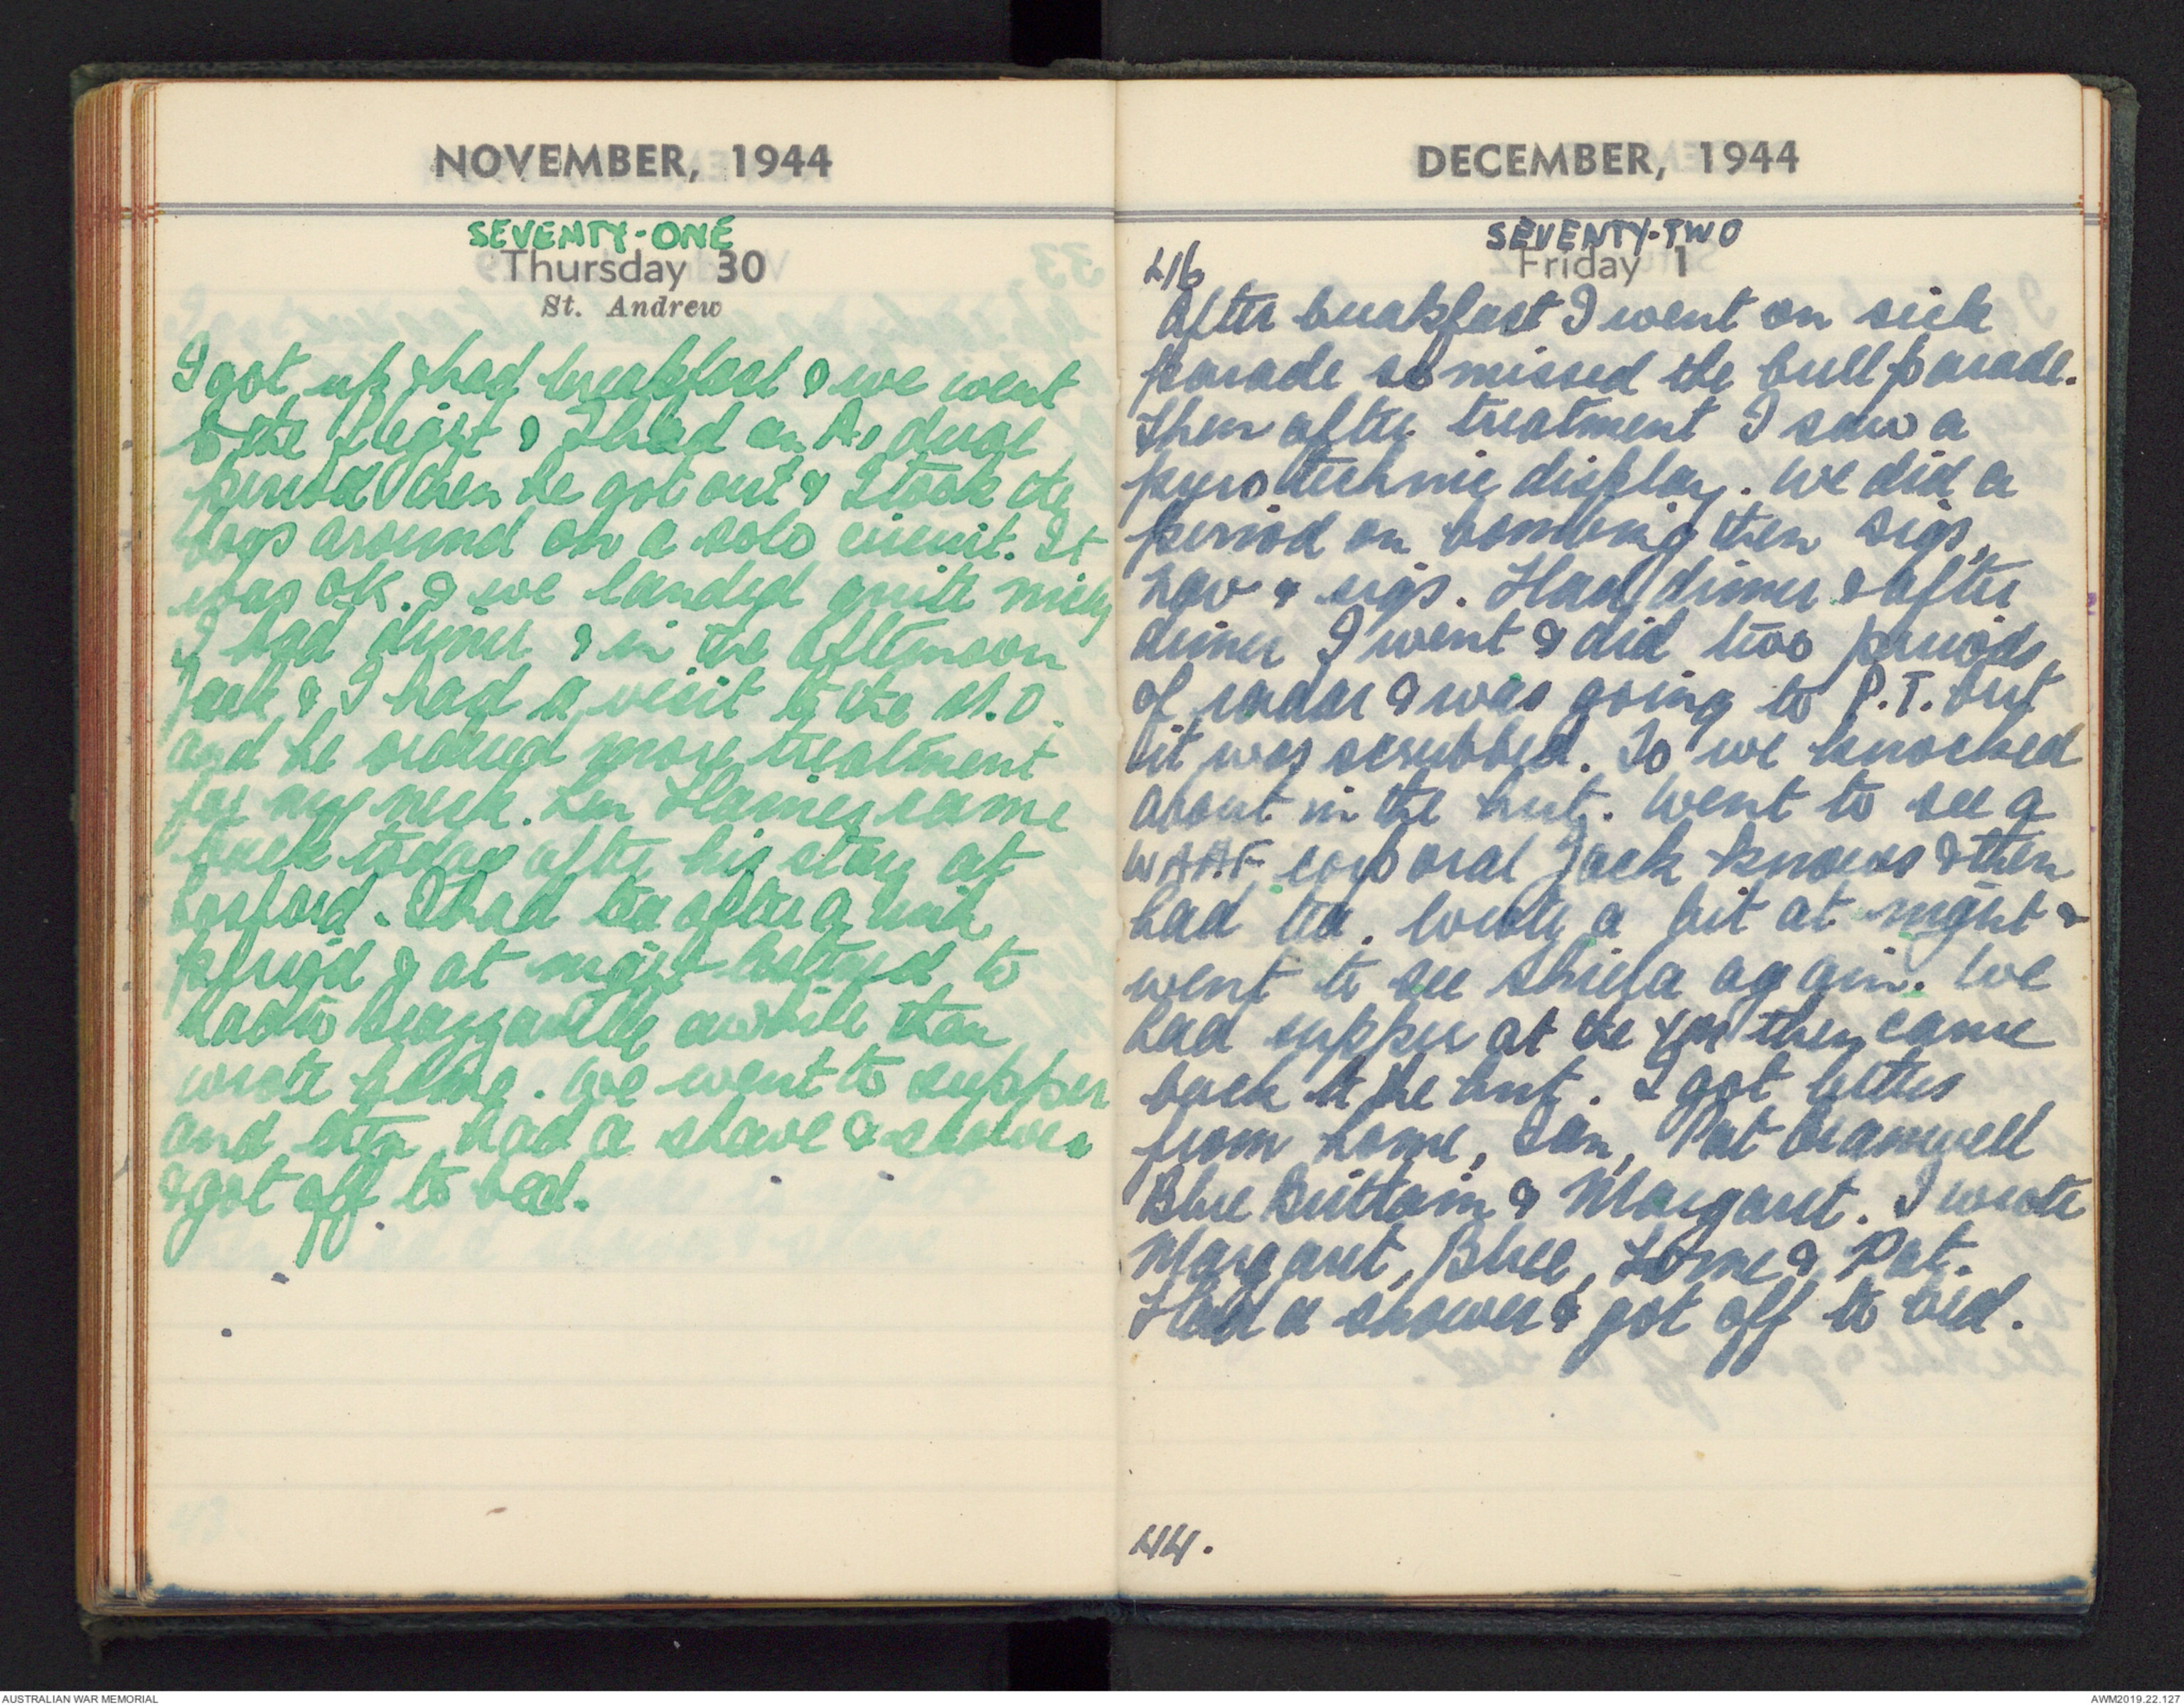 NOVEMBER, 1944
SEVENTY-ONE
Thursday 30
St. Andrew
I got up & had breakfast & we went
to the flight & I had an A1 dual
period then he got out & I took the
boys around on a solo circuit. It
was OK. & we landed quite nicely
I had dinner & in the afternoon
Jack & I had a visit to the M.O.
and he ordered more treatment
for my neck. Len Haines came
back today after his stay at
Cosford. I had tea after a link
period & at night listened to
radio awhile then
wrote home. We went to supper
and then had a shave & shower
& got off to bed.
DECEMBER, 1944
SEVENTY-TWO
Friday 1
L16
After breakfast I went on sick
parade so missed the bull parade.
Then after treatment I saw a
pyrotechnic display. We did a
period on bombing then sigs,
nav & sigs. Had dinner & after
dinner I went & did two periods
of radar & was going to P.T. but
it was scrubbed. So we knocked
about in the hut. Went to see a
WAAF corporal Jack knows & then
had tea. Wrote a bit at night &
went to see Shiela again. We
had supper at the then came
back to the hut. I got letters
from home, Ian, Pat Bramwell
Blue Brittain & Margaret. I wrote
Margaret, Blue, Home & Pat.
Had a shower & got off to bed.
L14.
AUSTRALIAN WAR MEMORIAL
AWM2019.22.127